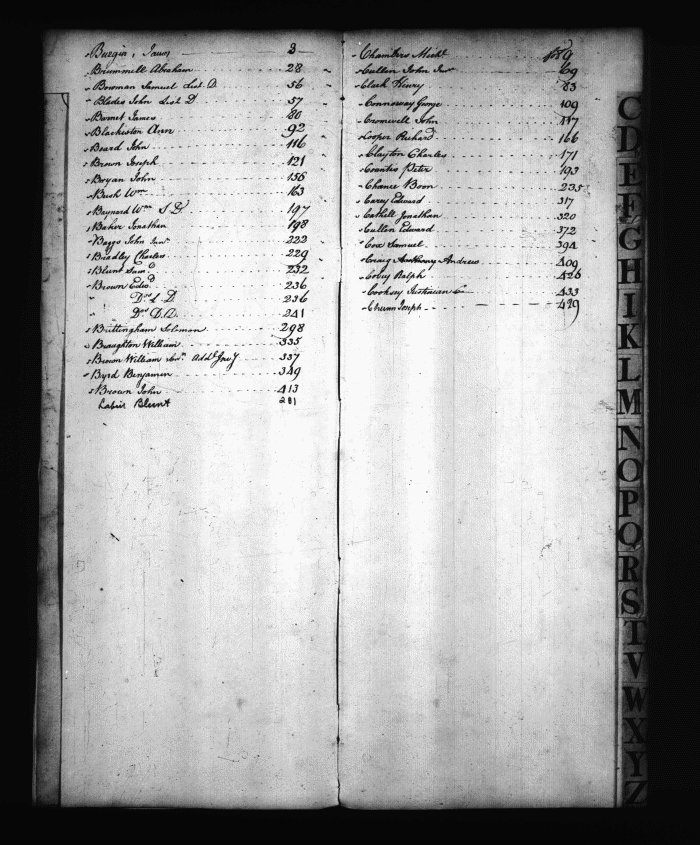 Burgin, James 3
Brummill Abraham 28
Bowman Samuel List D. 56
Blades John List D 57
Burnet James 80
Blackiston Ann 92
Beard John 116
Brown Joseph 121
Bryan John 156
Bush Wm 163
Baynard Wm S D. 197
Baker Jonathan 198
Baggs John Junr 222
Bradley Charles 229
Blunt Saml 232
Brown Edwd 236
" Do S. D. 236
" Do D.D. 241
Brittingham Soloman 298
Braughton William 335
Brown William Addl Invy 337
Byrd Benjamin 349
Brown John 413
Blunt 281
Chambers Michl
Cullen John Junr 69
Clark Henry 83
Connoway George 109
Cromwell John 117
Cooper Richard 166
Clayton Charles 171
Countis Peter 193
Chance Boon 235
Carey Edward 317
Cathell Jonathan 320
Cullen Edward 372
Cox Samuel 394
Craig Anthony Andrew 409
Coley Ralph 426
Cooksey Justinian 433
Joseph 479
C
D
E
F
G
H
I
K
L
M
N
O
P
Q
R
S
T
V
W
X
Y
Z